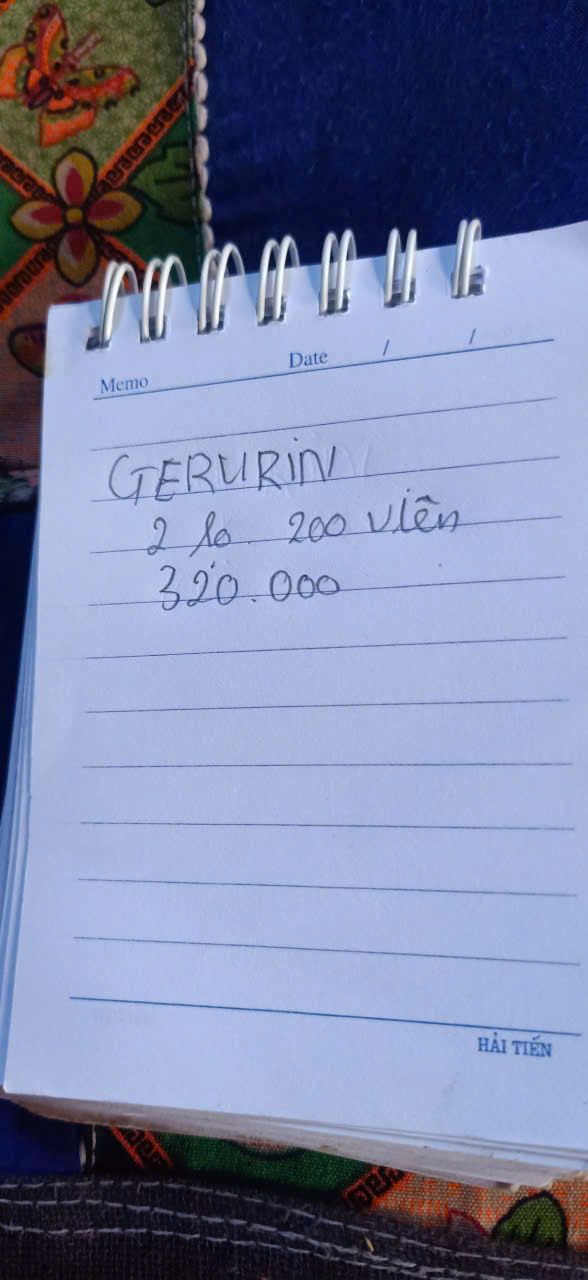 Memo Date / /
GERURIN
2 lo 200 viên
320.000
HẢI TIẾN